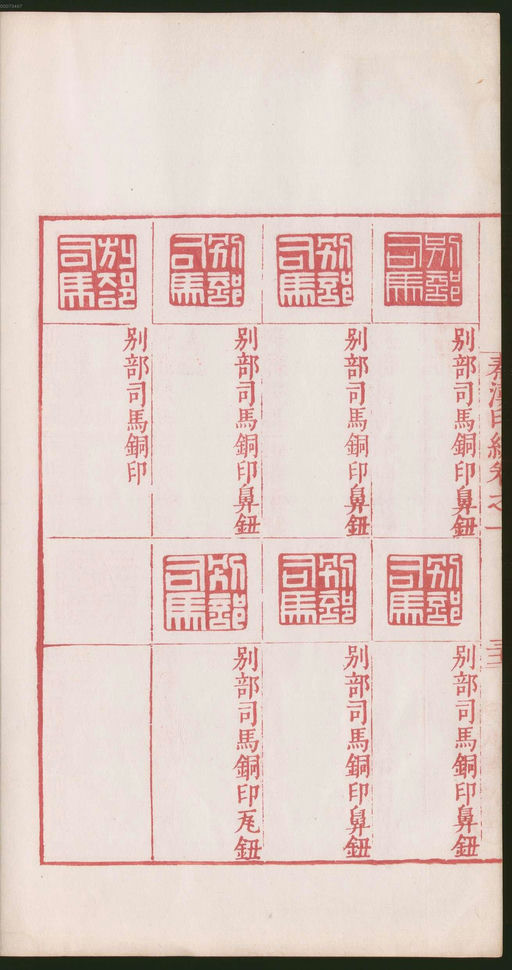 00073467
秦漢印統卷之一
三十二
別部司馬
別部司馬銅印鼻鈕
別部司馬
別部司馬銅印鼻鈕
別部司馬
別部司馬銅印鼻鈕
別部司馬
別部司馬銅印
別部司馬
別部司馬銅印鼻鈕
別部司馬
別部司馬銅印鼻鈕
別部司馬
別部司馬銅印瓦鈕